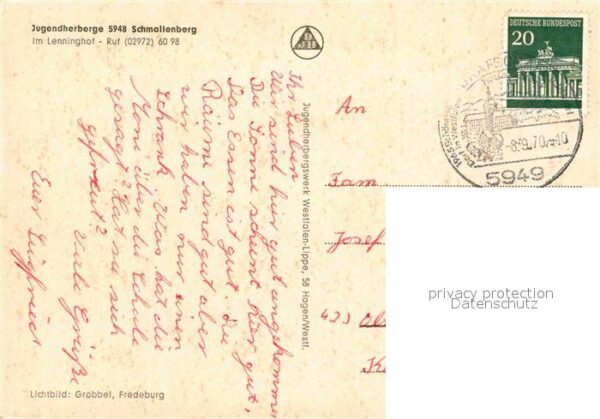 Jugendherberge 5948 Schmallenberg
Im Lenninghof - Ruf (02972) 60 98
Ihr Lieben
Wir sind hier gut angekommen
Die Sonne scheint hier gut,
Das Essen ist gut. Die
Räume sind gut aber
wir haben nur einen
Schrank. Was hat die
Moni über die Schule
gesagt? Hat sie sich
gefreut?
Viele Grüße
Euer
Lichtbild: Grobbel, Fredeburg
Jugendherbergswerk Westfalen-Lippe, 58 Hagen/Westf.
An
Fam.
Josef
DEUTSCHE BUNDESPOST
20
-8.9.70.-10
5949
privacy protection
Datenschutz